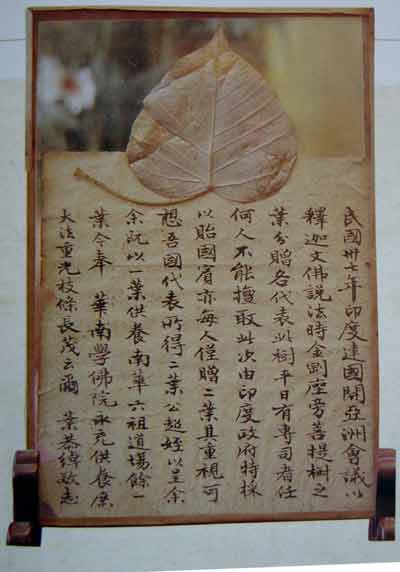 民國卅七年印度建國開亞洲會議以
釋迦文佛說法時金剛座旁菩提樹之
葉分贈各代表此樹平日有專司者任
何人不能擅取此次由印度政府特採
以貽國賓亦每人僅贈二葉其重視可
想吾國代表所得二葉公超姪以呈余
余既以一葉供養南華六祖道場餘一
葉今奉 華南學佛院永充供養庶
大法重光枝條長茂云爾 葉恭綽敬志